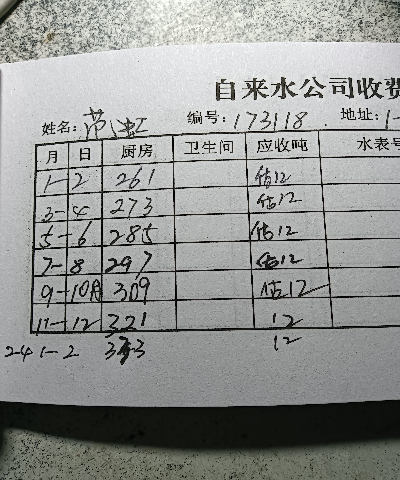 自来水公司收费
姓名: 范虹 编号: 173118. 地址: 1-
月 日 厨房 卫生间 应收吨 水表号
1-2 261 估12
3-4 273 估12
5-6 285 估12
7-8 297 估12
9-10月 309 估12
11-12 321 12
24 1-2 333 12